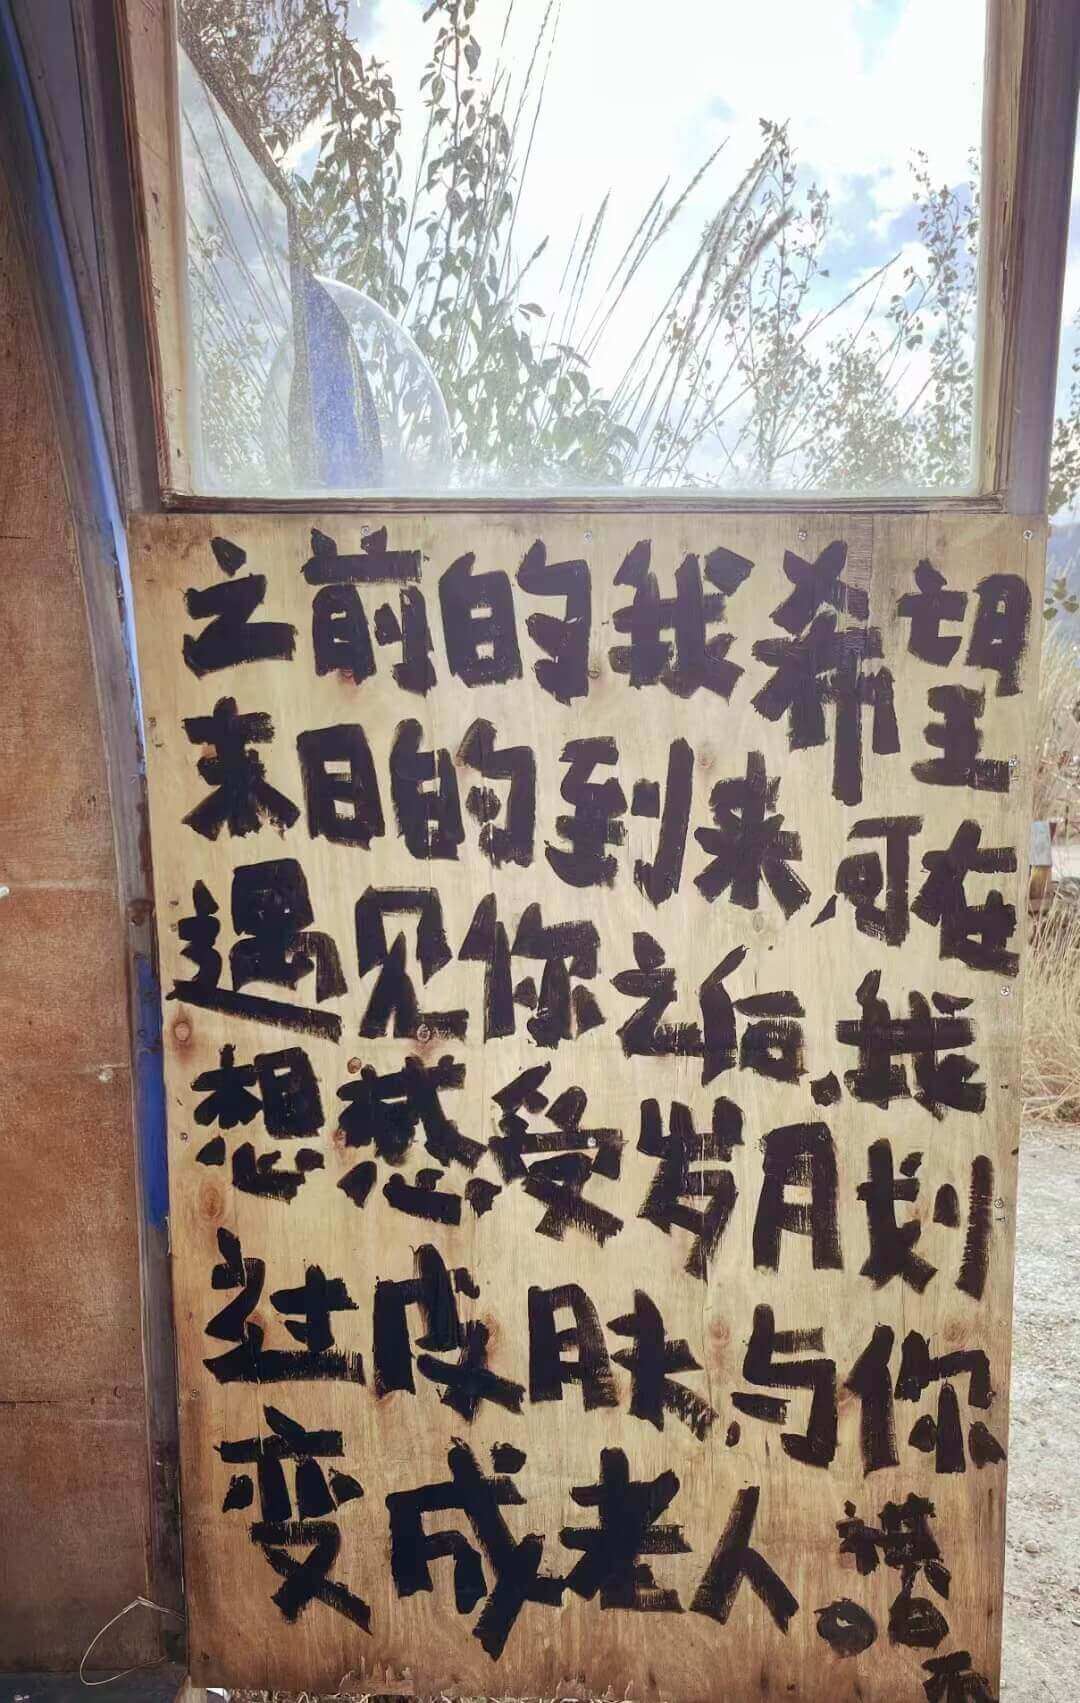 之前的我希望
末日的到来,可在
遇见你之后,我
想感受岁月划
过皮肤,与你
变成老人。